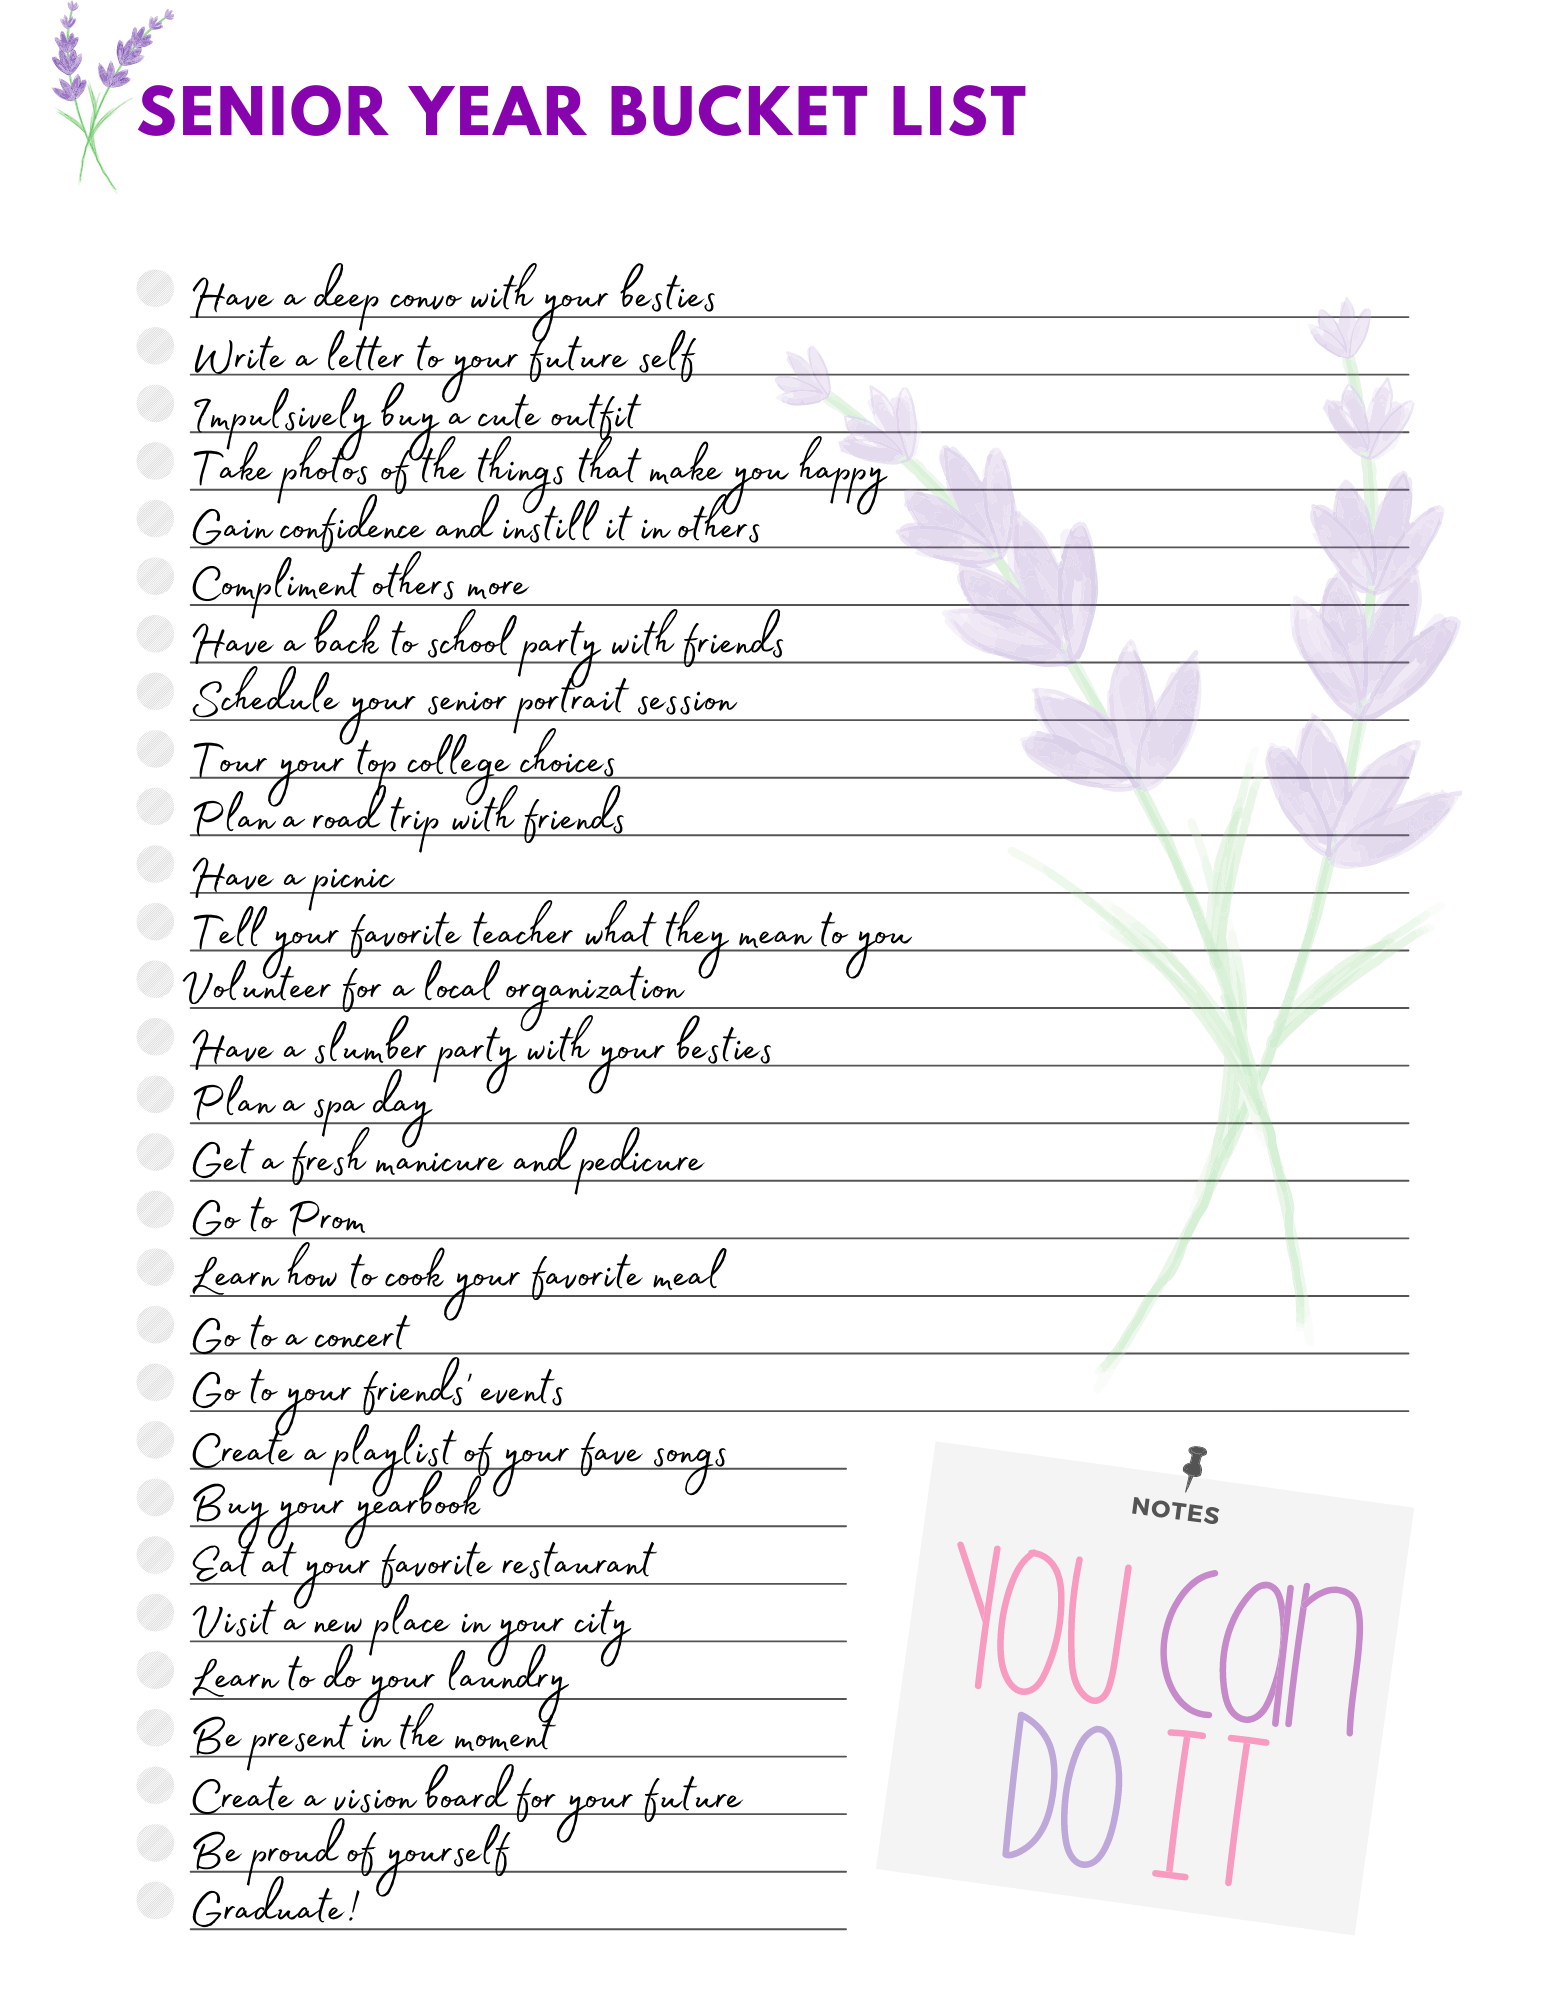 SENIOR YEAR BUCKET LIST
Have a deep convo with your besties
Write a letter to your future self
Impulsively buy a cute outfit
Take photos of the things that make you happy
Gain confidence and instill it in others
Compliment others more
Have a back to school party with friends
Schedule your senior portrait session
Tour your top college choices
Plan a road trip with friends
Have a picnic
Tell your favorite teacher what they mean to you
Volunteer for a local organization
Have a slumber party with your besties
Plan a spa day
Get a fresh manicure and pedicure
Go to Prom
Learn how to cook your favorite meal
Go to a concert
Go to your friends' events
Create a playlist of your fave songs
Buy your yearbook
Eat at your favorite restaurant
Visit a new place in your city
Learn to do your laundry
Be present in the moment
Create a vision board for your future
Be proud of yourself
Graduate!
NOTES
YOU can
DO IT